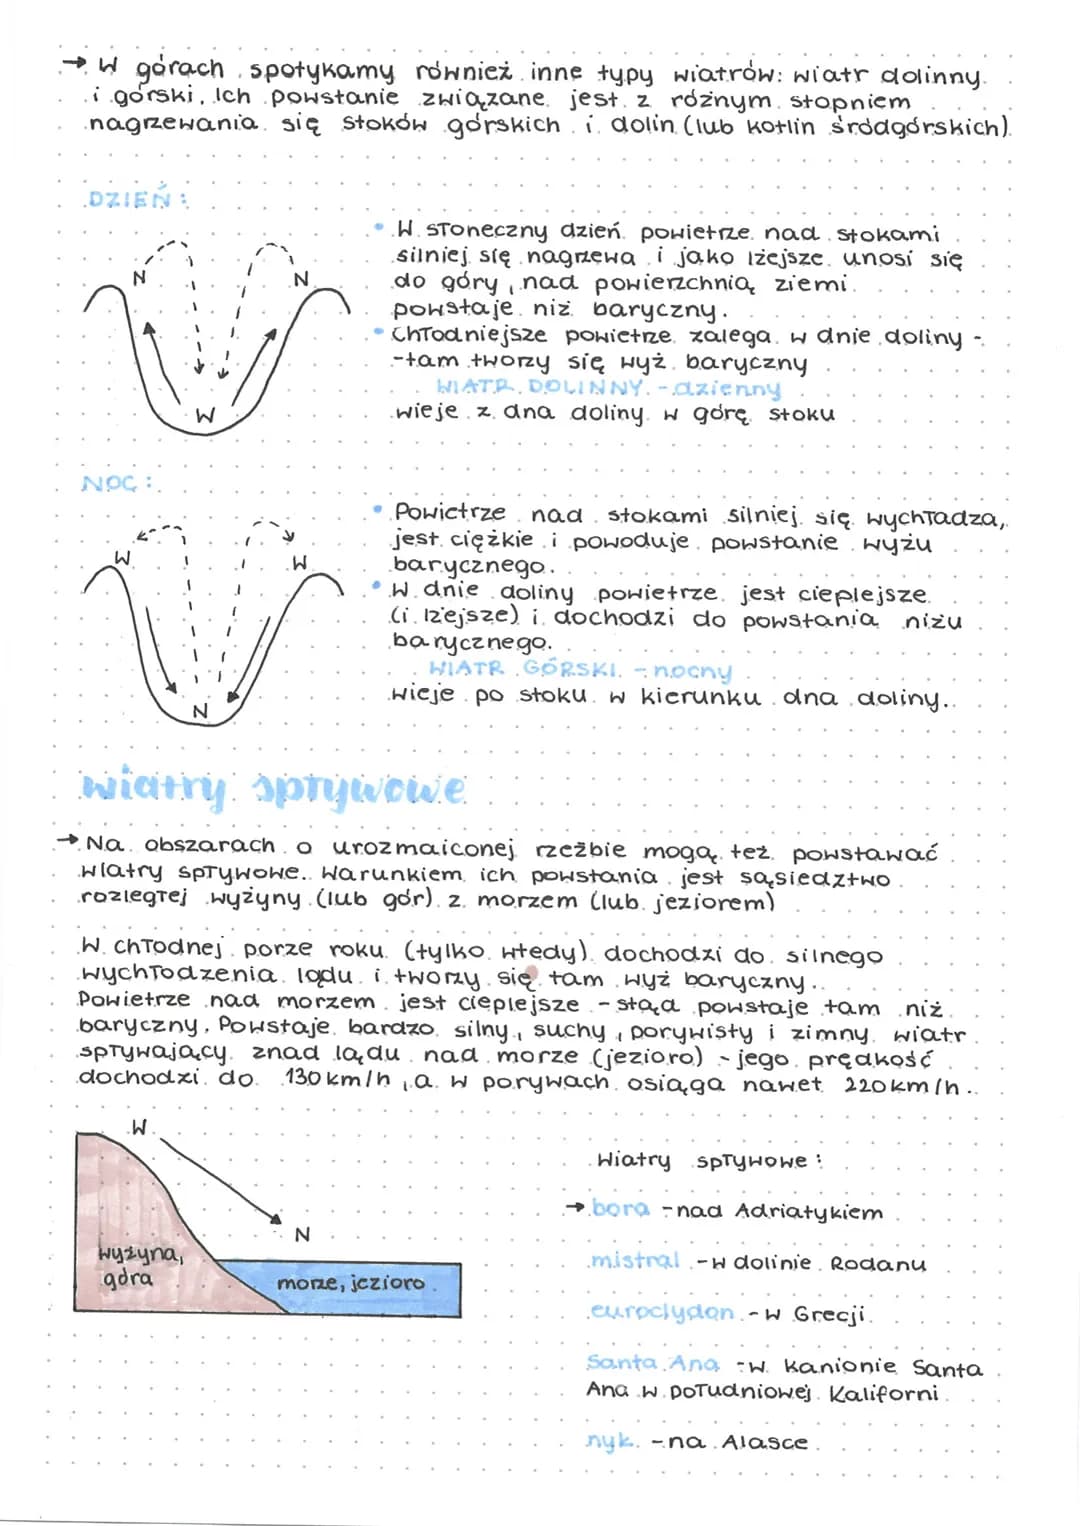 → W górach spotykamy również inne typy wiatrów: wiatr dolinny
i górski. Ich powstanie związane jest z różnym stopniem
nagrzewania się stoków górskich i dolin (lub kotlin śródgórskich).
DZIEŃ:
N N
W
• W słoneczny dzień powietrze nad stokami
silniej się nagrzewa i jako lżejsze unosi się
do góry, nad powierzchnią ziemi
powstaje niż baryczny.
• Chłodniejsze powietrze zalega w dnie doliny -
-tam tworzy się wyż baryczny
WIATR DOLINNY - dzienny
wieje z dna doliny w górę stoku
NOC:
W W
N
• Powietrze nad stokami silniej się wychładza,
jest ciężkie i powoduje powstanie wyżu
barycznego.
• W dnie doliny powietrze jest cieplejsze
(i lżejsze) i dochodzi do powstania niżu
barycznego.
WIATR GÓRSKI - nocny
wieje po stoku w kierunku dna doliny.
wiatry spływowe
→ Na obszarach o urozmaiconej rzeźbie mogą też powstawać
wiatry spływowe. Warunkiem ich powstania jest sąsiedztwo
rozległej wyżyny (lub gór) z morzem (lub jeziorem)
W chłodnej porze roku (tylko wtedy) dochodzi do silnego
wychłodzenia lądu i tworzy się tam wyż baryczny.
Powietrze nad morzem jest cieplejsze - stąd powstaje tam niż
baryczny. Powstaje bardzo silny, suchy, porywisty i zimny wiatr
spływający znad lądu nad morze (jezioro) - jego prędkość
dochodzi do 130 km/h, a w porywach osiąga nawet 220 km/h.
W
N
wyżyna,
góra
morze, jezioro
Wiatry spływowe:
→ bora - nad Adriatykiem
mistral - w dolinie Rodanu
euroclydon - w Grecji
Santa Ana - w kanionie Santa
Ana w południowej Kaliforni
nyk - na Alasce